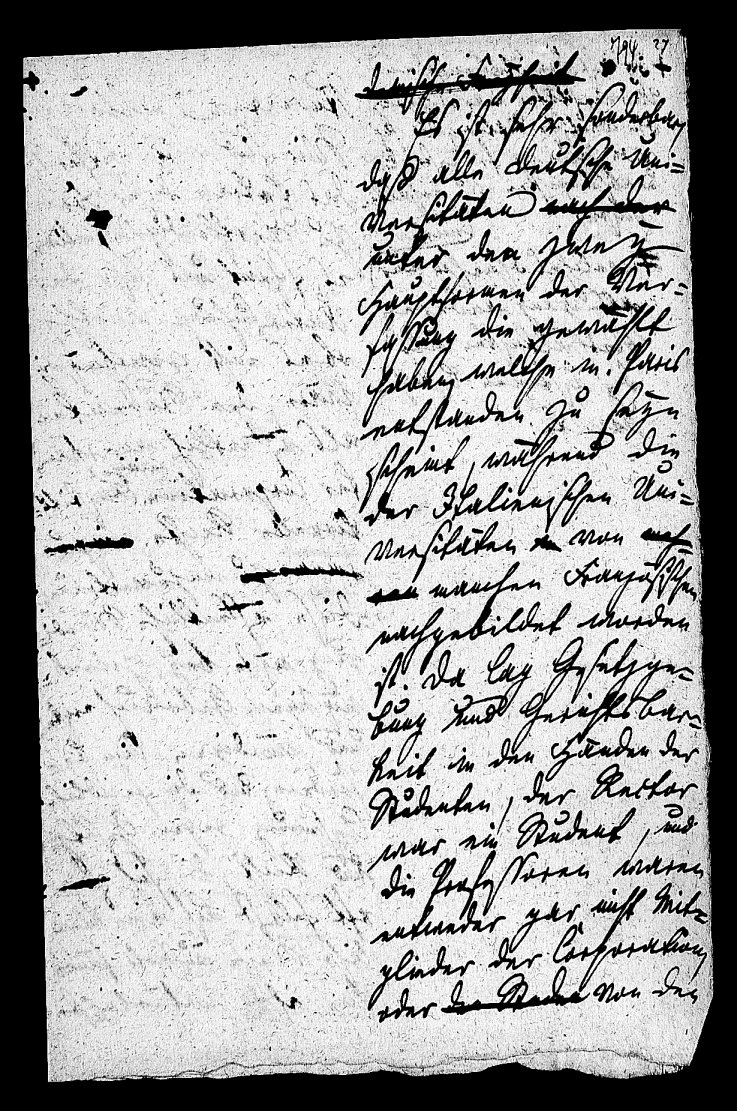 794 27
demische Freyheit
Es ist sehr sonderbar,
daß alle deutsche Uni=
versitäten nach der
unter den zwey
Hauptformen der Ver=
fassung die gewählt
haben, welche in Paris
entstanden zu seyn
scheint, während die
der Italienischen Uni=
versitäten von
manchen Französischen
nachgebildet worden
ist. Da lag Gesetzge=
bung und Gerichtsbar=
keit in den Händen der
Studenten, der Rector
war ein Student, und
die Professoren waren
entweder gar nicht Mit=
glieder der Corporation,
oder der Studen von den